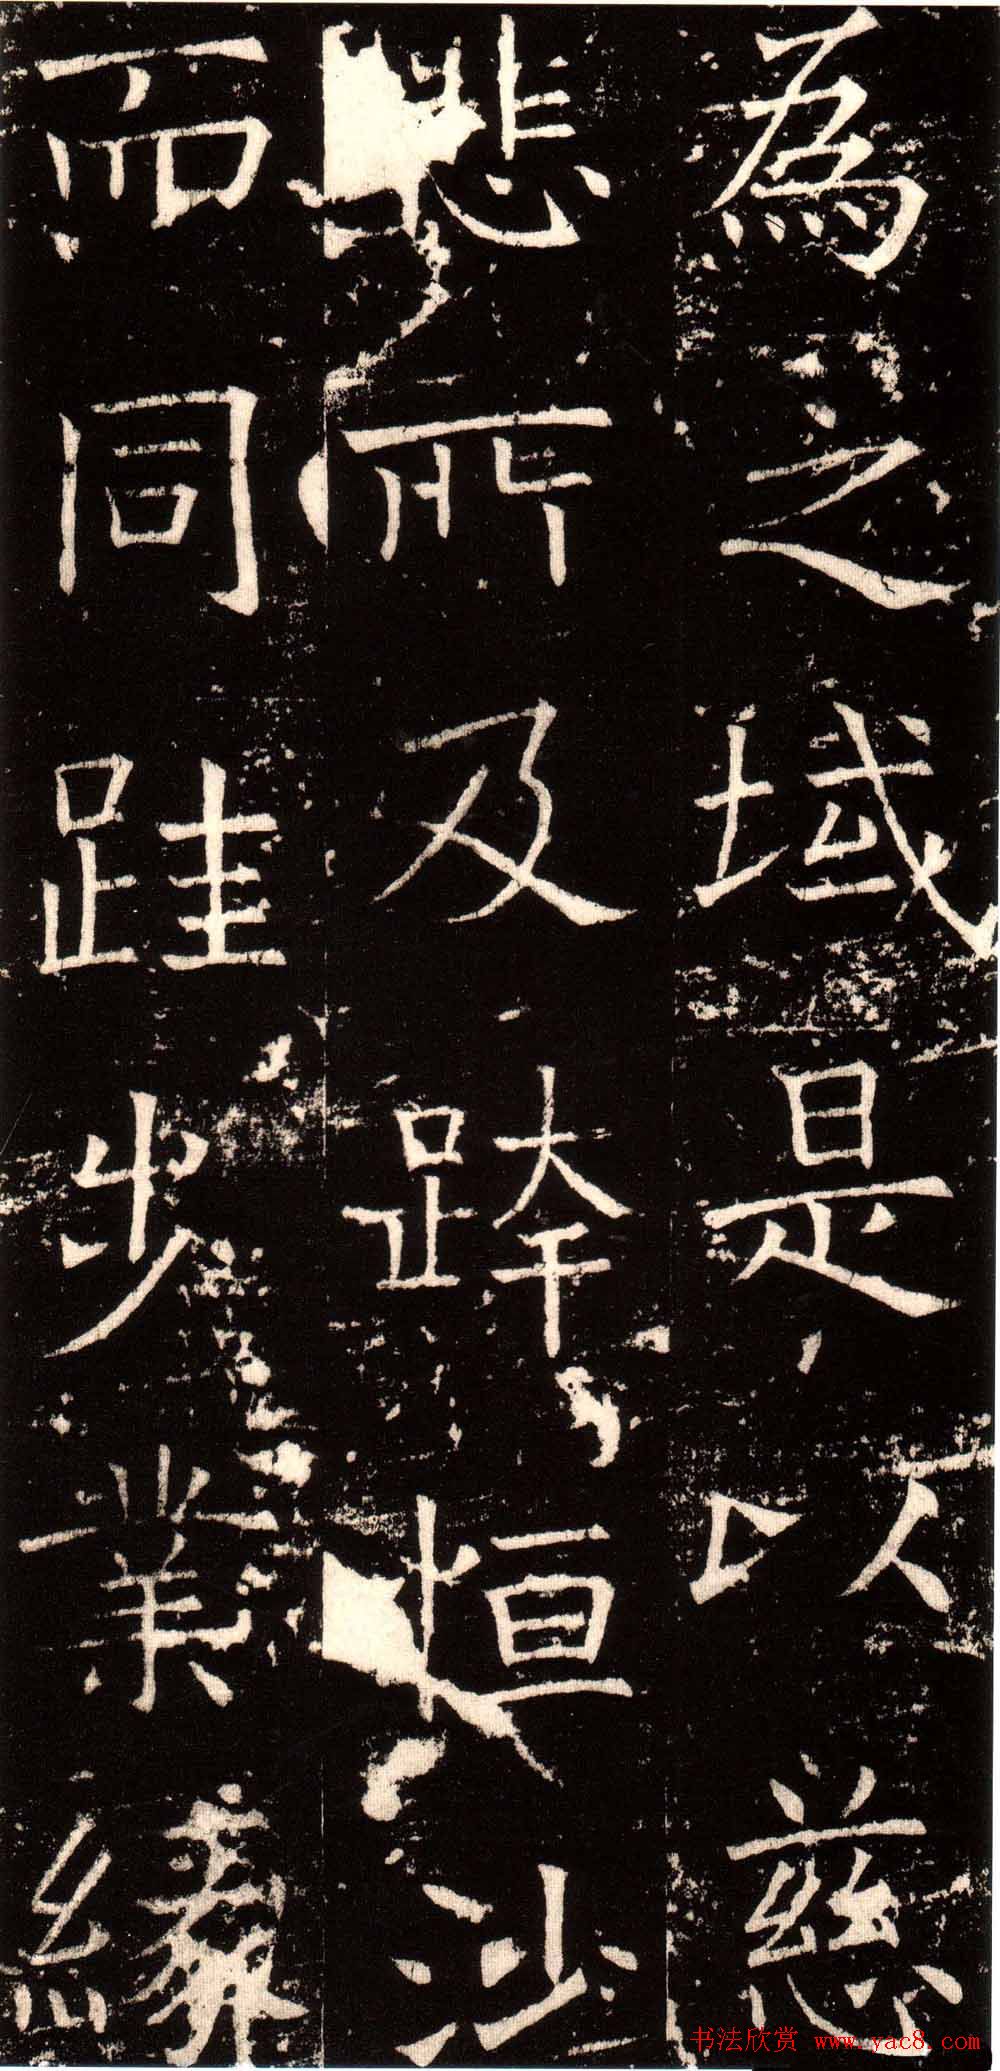 為之域是以慈
悲所及跨恒沙
而同跬步業緣
书法欣赏 www.yac8.com